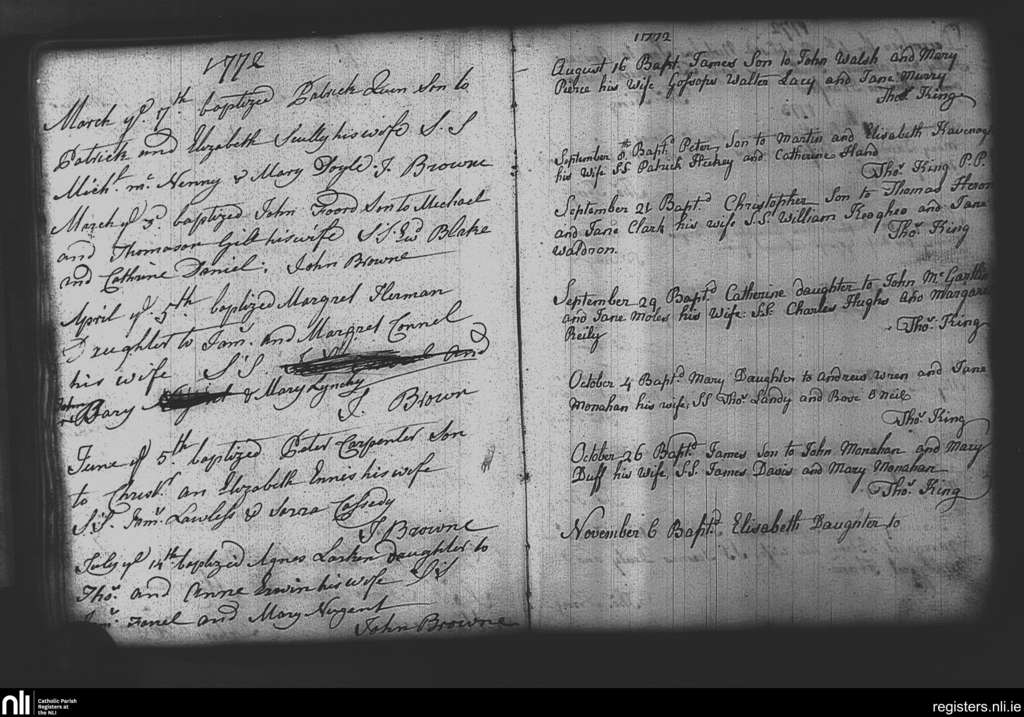 1772
March ye 7th baptized Patrick Quin Son to
Patrick and Elizabeth Scully his wife S.S
Michl. mc. Nenny & Mary Doyle J. Browne
March ye 3d. baptized John Foord Son to Michael
and Thomason Gilt his wife S.S. Blake
and Cathrine Daniel. John Browne
April ye 5th. baptized Margret Herman
Daughter to Jam. and Margret Connel
his wife S.S. and
Mary & Mary Lynchy
J. Brown
June ye 5th baptized Peter Carpenter Son
to Christr. an Elizabeth Ennis his wife
S.S. Jams. Lawless & Sarra Cassedy
J Browne
July ye 14th baptized Agnes Larken daughter to
Thos. and Anne Erwin his wife S.S
and Mary Nugent
John Browne
1772
August 16 Bapt. James Son to John Walsh and Mary
Pierce his Wife Gossops Walter Lacy and Jane Murry
Thos. King
September 8th Bapt. Peter, Son to Martin and Elisabeth Kavenagh
his Wife S.S Patrick Hickey and Catherine Hand
Thos. King P.P.
September 21 Baptd. Christopher Son to Thomas Heron
and Jane Clark his wife S.S. William Keoghoe and Jane
Waldron.
Thos. King
September 29 Baptd. Catherine daughter to John
and Jane Moles his Wife. S.S. Charles Hughs and Margaret
Reily
Thos. King
October 4 Baptd. Mary Daughter to Andrew Wren and Jane
Monahan his wife, SS Thos. Landy and Rose O Neil
Thos. King
October 26 Baptd. James Son to John Monahan and Mary
Duff his Wife, S.S. James Davis and Mary Monahan
Thos. King
November 6 Baptd. Elisabeth Daughter to
nli
Catholic Parish
Registers at
the NLI
registers.nli.ie